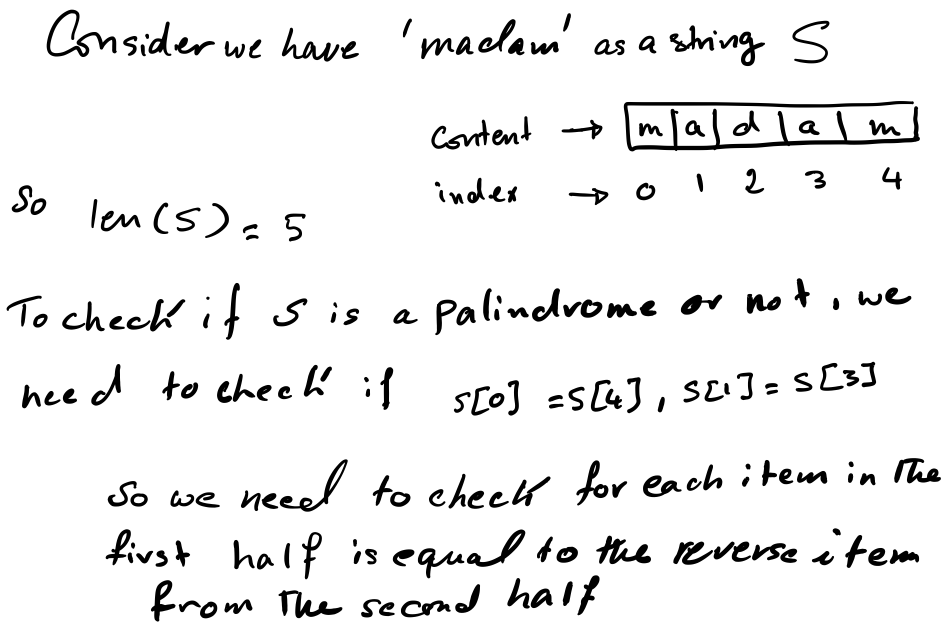 Consider we have 'madam' as a string S
content → m a d a m
index → 0 1 2 3 4
So len(S) = 5
To check if S is a palindrome or not, we
need to check if S[0] = S[4], S[1] = S[3]
So we need to check for each item in the
first half is equal to the reverse item
from the second half